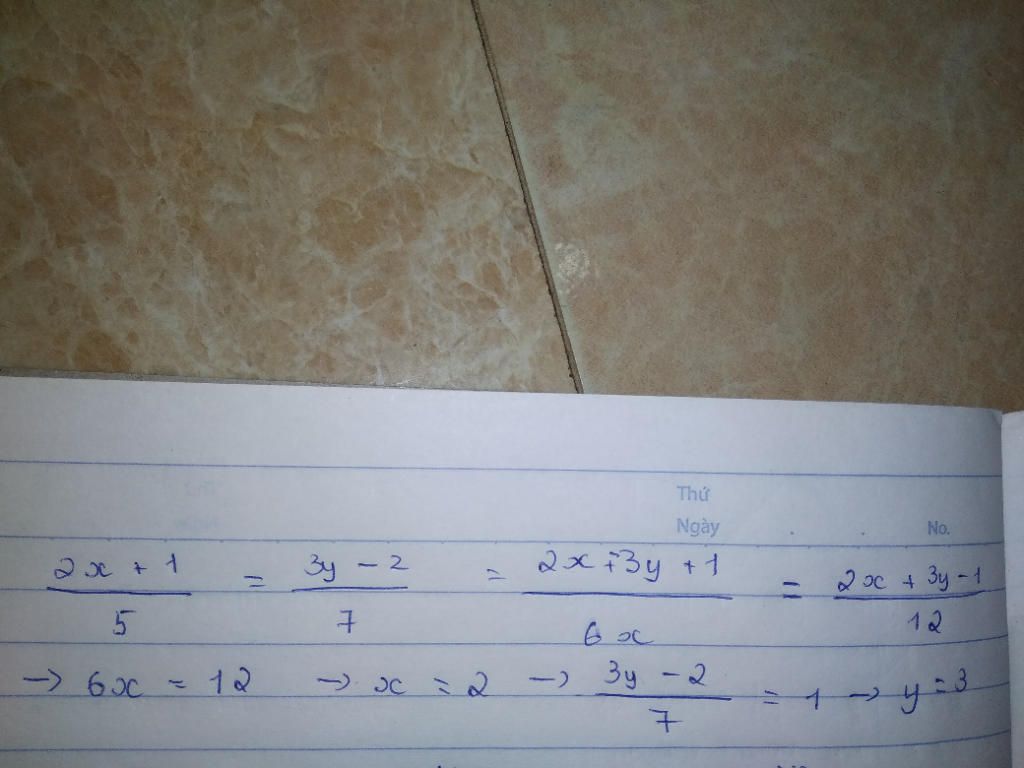 Thứ
Ngày No.
2x + 1 / 5 = 3y - 2 / 7 = 2x + 3y + 1 / 6x = 2x + 3y - 1 / 12
→ 6x = 12 → x = 2 → 3y - 2 / 7 = 1 → y = 3